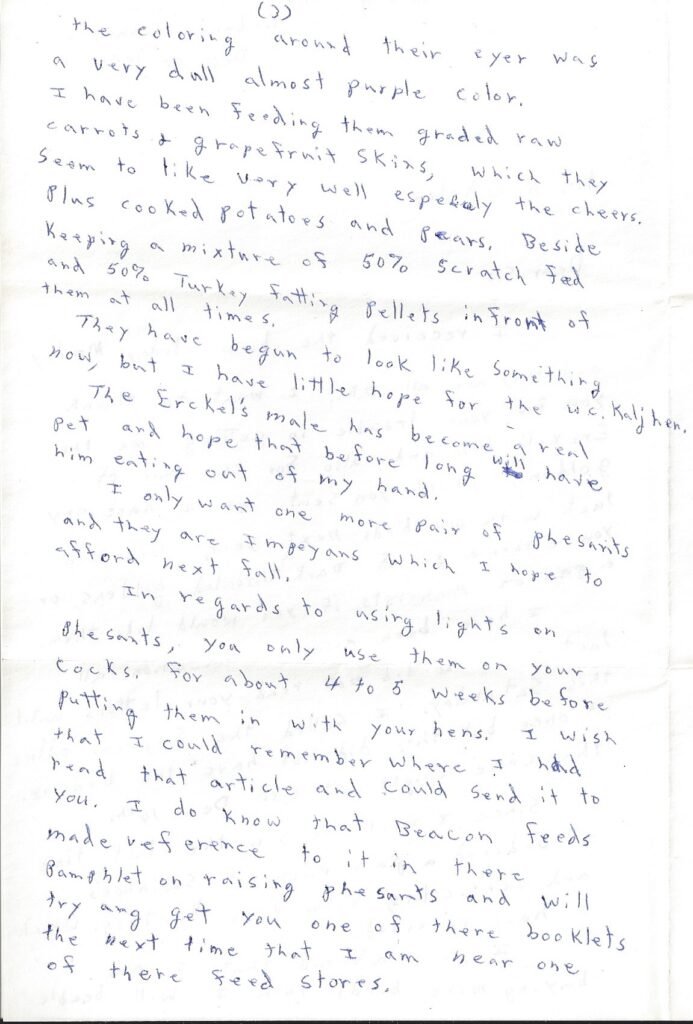 (3)
the coloring around their eyer was
a very dull almost purple color.
I have been feeding them graded raw
carrots & grapefruit skins, which they
seem to like very well especaly the cheers.
Plus cooked potatoes and pears. Beside
keeping a mixture of 50% scratch feed
and 50% Turkey fatting pellets infront of
them at all times.
They have begun to look like something
now, but I have little hope for the w.c. Kalj hen.
The Erckel's male has become a real
pet and hope that before long will have
him eating out of my hand.
I only want one more pair of phesants
and they are Impeyans which I hope to
afford next fall.
In regards to using lights on
phesants, you only use them on your
cocks. For about 4 to 5 weeks before
putting them in with your hens. I wish
that I could remember where I had
read that article and could send it to
you. I do know that Beacon feeds
made reference to it in there
Pamphlet on raising phesants and will
try ang get you one of there booklets
the next time that I am near one
of there feed stores.